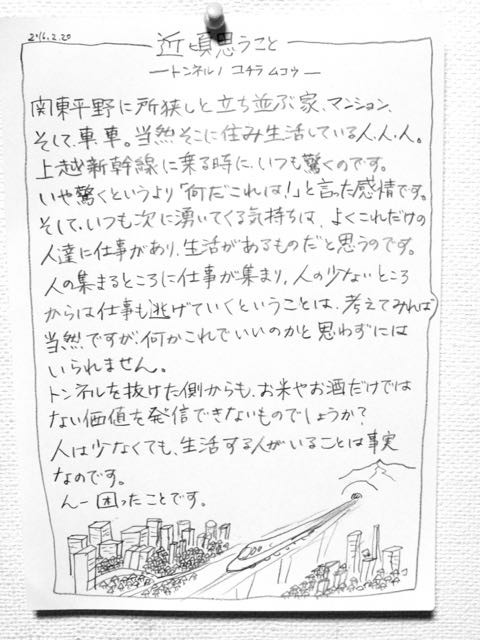 2016.2.20
近頃思うこと
ートンネルノ コチラ ムコウー
関東平野に所狭しと立ち並ぶ家、マンション、
そして、車、車。当然そこに住み生活している人、人、人。
上越新幹線に乗る時に、いつも驚くのです。
いや驚くというより「何だこれは!」と言った感情です。
そして、いつも次に湧いてくる気持ちは、よくこれだけの
人達に仕事があり、生活があるものだと思うのです。
人の集まるところに仕事が集まり、人の少ないところ
からは仕事も逃げていくということは、考えてみれば
当然ですが、何かこれでいいのかと思わずには
いられません。
トンネルを抜けた側からも、お米やお酒だけでは
ない価値を発信できないものでしょうか?
人は少なくても、生活する人がいることは事実
なのです。
んー困ったことです。